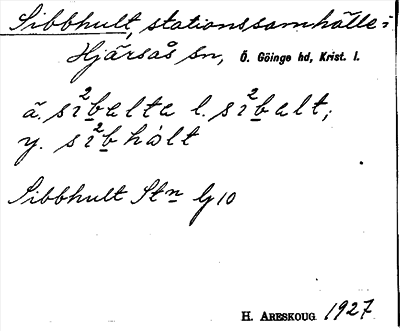 Sibbhult, stationssamhälle i
Hjärsås sn, Ö. Göinge hd, Krist. l.
ä. si²balta l. si²balt;
y. si²bhålt
Sibbhult Stn Gg 10
H. ARESKOUG 1927